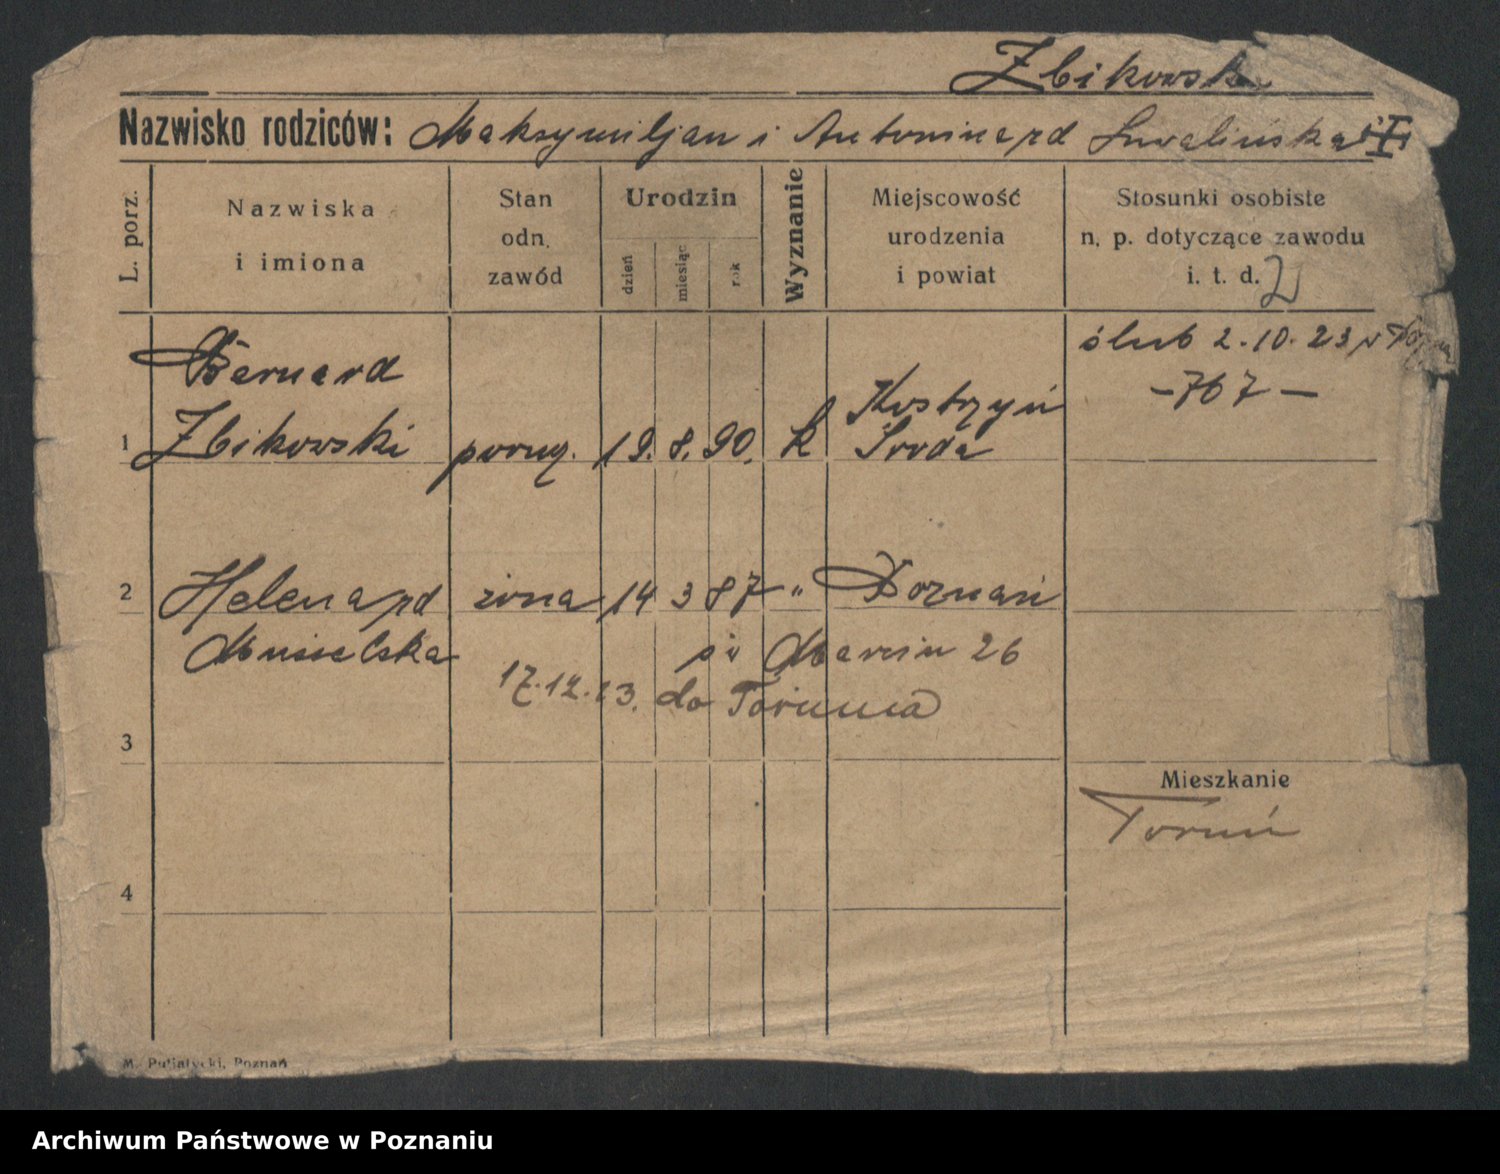 Zbikowski
Nazwisko rodziców: Maksymiljan i Antonina rd
L. porz.
Nazwiska
i imiona
Stan
odn.
zawód
Urodzin
dzień
miesiąc
rok
Wyznanie
Miejscowość
urodzenia
i powiat
Stosunki osobiste
n. p. dotyczące zawodu
i. t. d.
ślub 2.10.23
-767-
Bernard
1 Zbikowski porucz. 19. 8. 90. k Kostrzyń
Środa
2 Helena rd żona 14 3 87 " Poznań
Musielska
św Marcin 26
17.12.23. do Torunia
3
Mieszkanie
Toruń
4
M. Putiatycki, Poznań
Archiwum Państwowe w Poznaniu